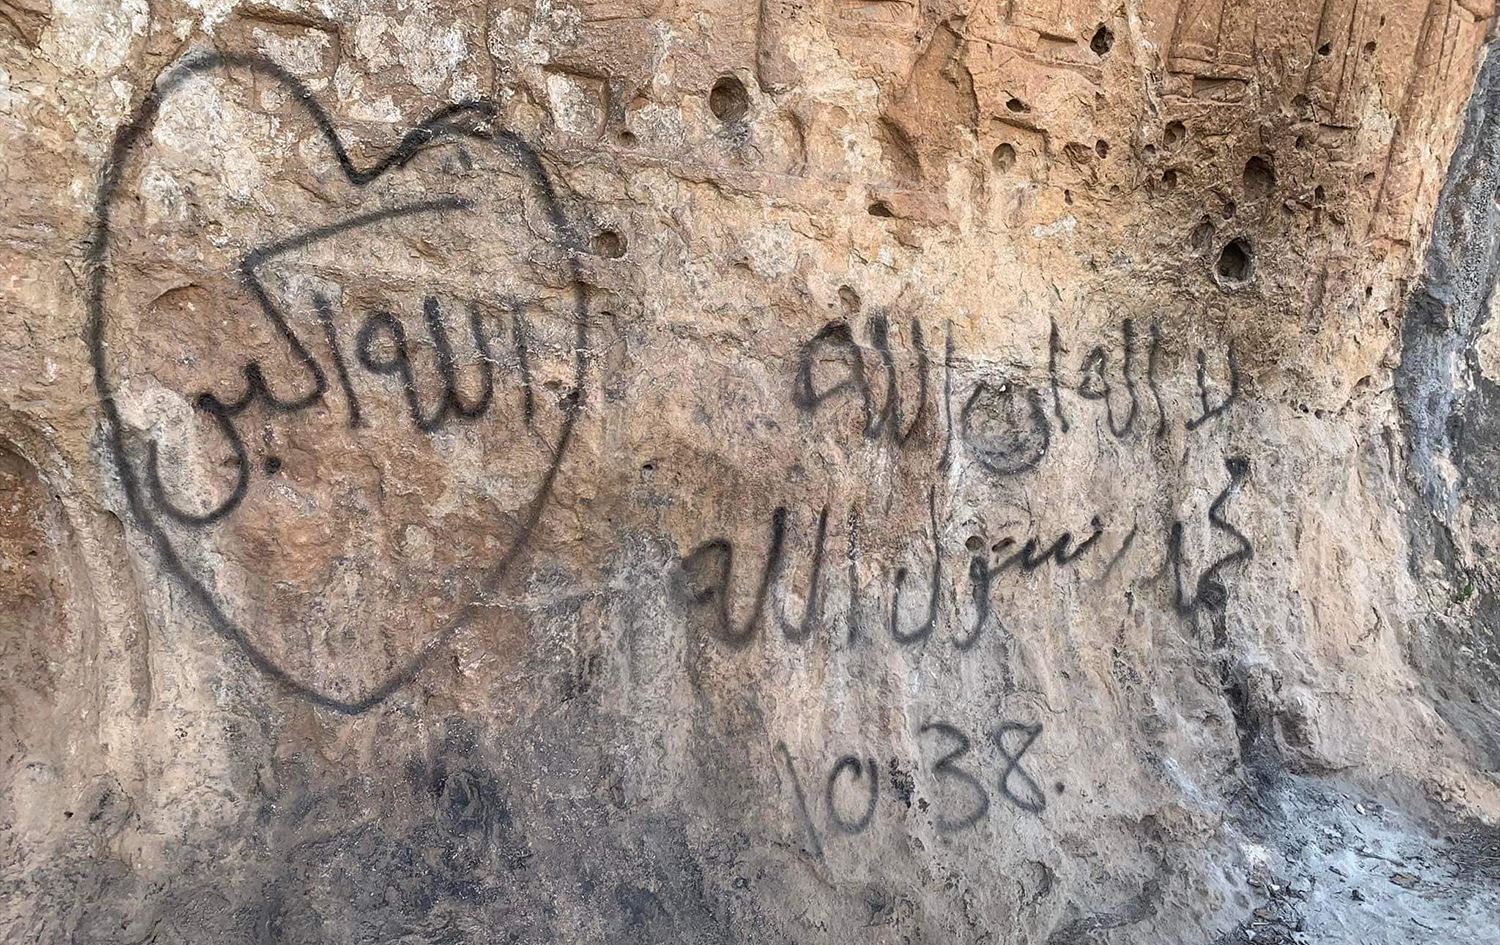 لا اله ان الله
محمد رسول الله
1038
الله اكبر